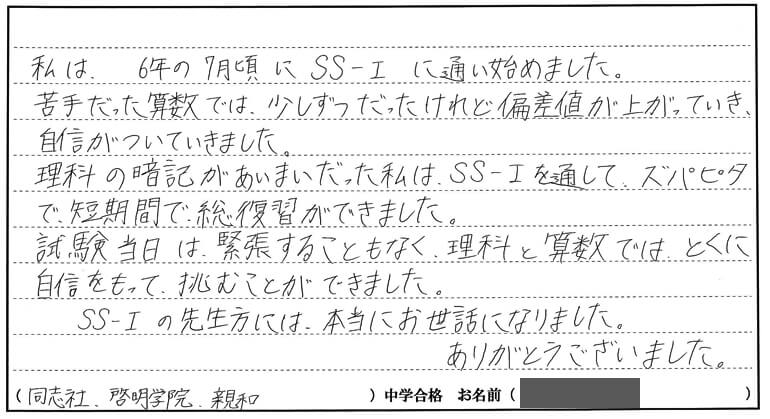 私は、6年の7月頃にSS-Iに通い始めました。
苦手だった算数では、少しずつだったけれど偏差値が上がっていき、
自信がついていきました。
理科の暗記があいまいだった私は、SS-Iを通して、ズバピタ
で、短期間で、総復習ができました。
試験当日は、緊張することもなく、理科と算数では、とくに
自信をもって、挑むことができました。
SS-Iの先生方には、本当にお世話になりました。
ありがとうございました。
(同志社、啓明学院、親和)中学合格 お名前( )